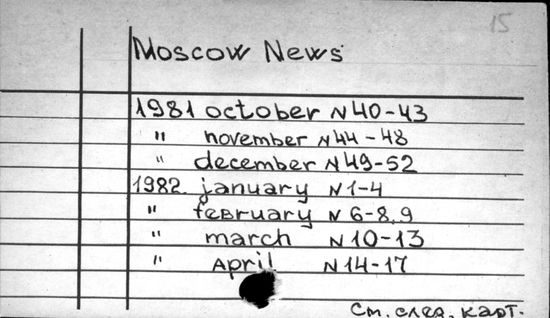 15
Moscow News
1981 october N40-43
" november N44-48
" december N49-52
1982. january N1-4
" february N 6-8,9
" march N10-13
" april N14-17
См. след. карт.